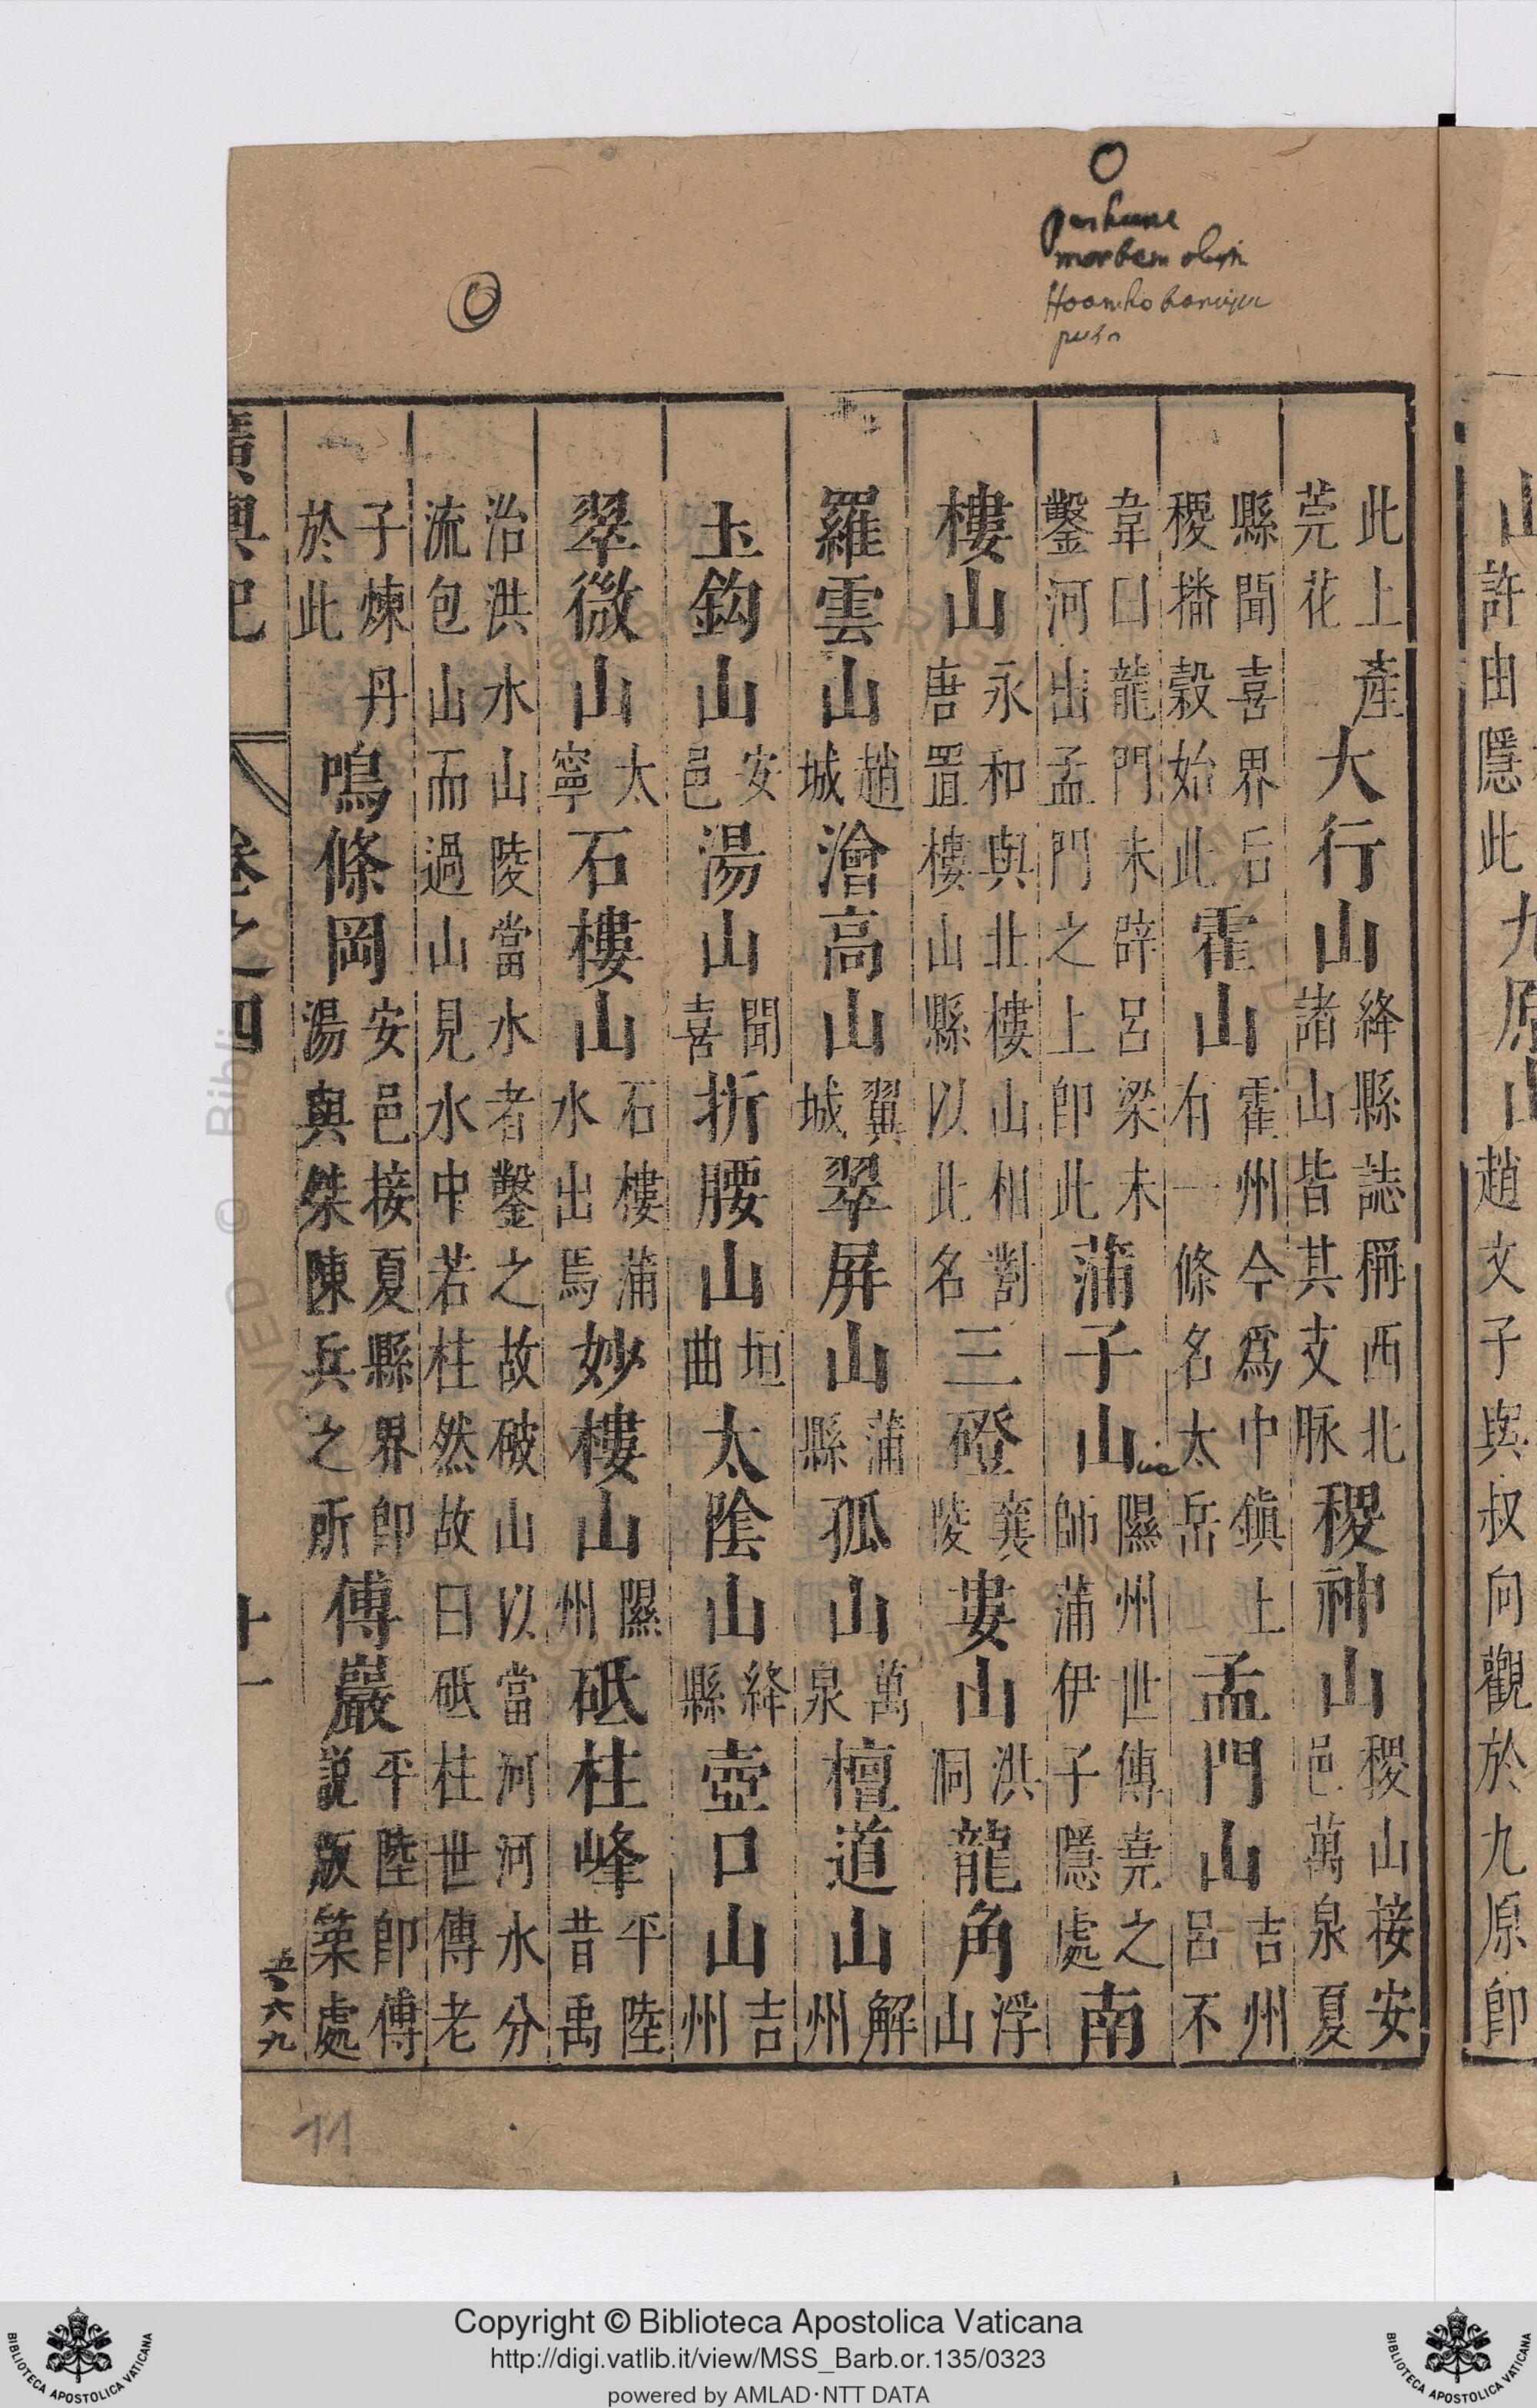 山許由隱此九原山趙文子與叔向觀於九原即
此上產莞花大行山絳縣誌稱西北諸山皆其支脉稷神山稷山接安邑萬泉夏
縣聞喜界后稷播穀始此霍山霍州今爲中鎮上有一條名太岳山孟門山吉州呂不
韋曰龍門未辟呂梁未鑿河出孟門之上即此蒲子山隰州世傳堯之師蒲伊子隱處南
樓山永和與北樓山相對唐置樓山縣以此名三磴襄陵婁山洪洞龍角浮山
羅雲山趙城澮高山翼城翠屏山蒲縣孤山萬泉檀道山解州
玉鈎山安邑湯山聞喜折腰山垣曲太陰山絳縣壺口山吉州
翠微山太寧石樓山石樓蒲水出焉妙樓山隰州砥柱峰平陸昔禹
治洪水山陵當水者鑿之故破山以當河河水分流包山而過山見水中若柱然故曰砥柱世傳老
子煉丹於此鳴條岡安邑接夏縣界即湯與桀陳兵之所傅巖平陸即傅說版築處
廣輿記 卷之四 十一 五六九
11
Copyright © Biblioteca Apostolica Vaticana
http://digi.vatlib.it/view/MSS_Barb.or.135/0323
powered by AMLAD·NTT DATA
BIBLIOTECA APOSTOLICA VATICANA
BIBLIOTECA APOSTOLICA VATICANA